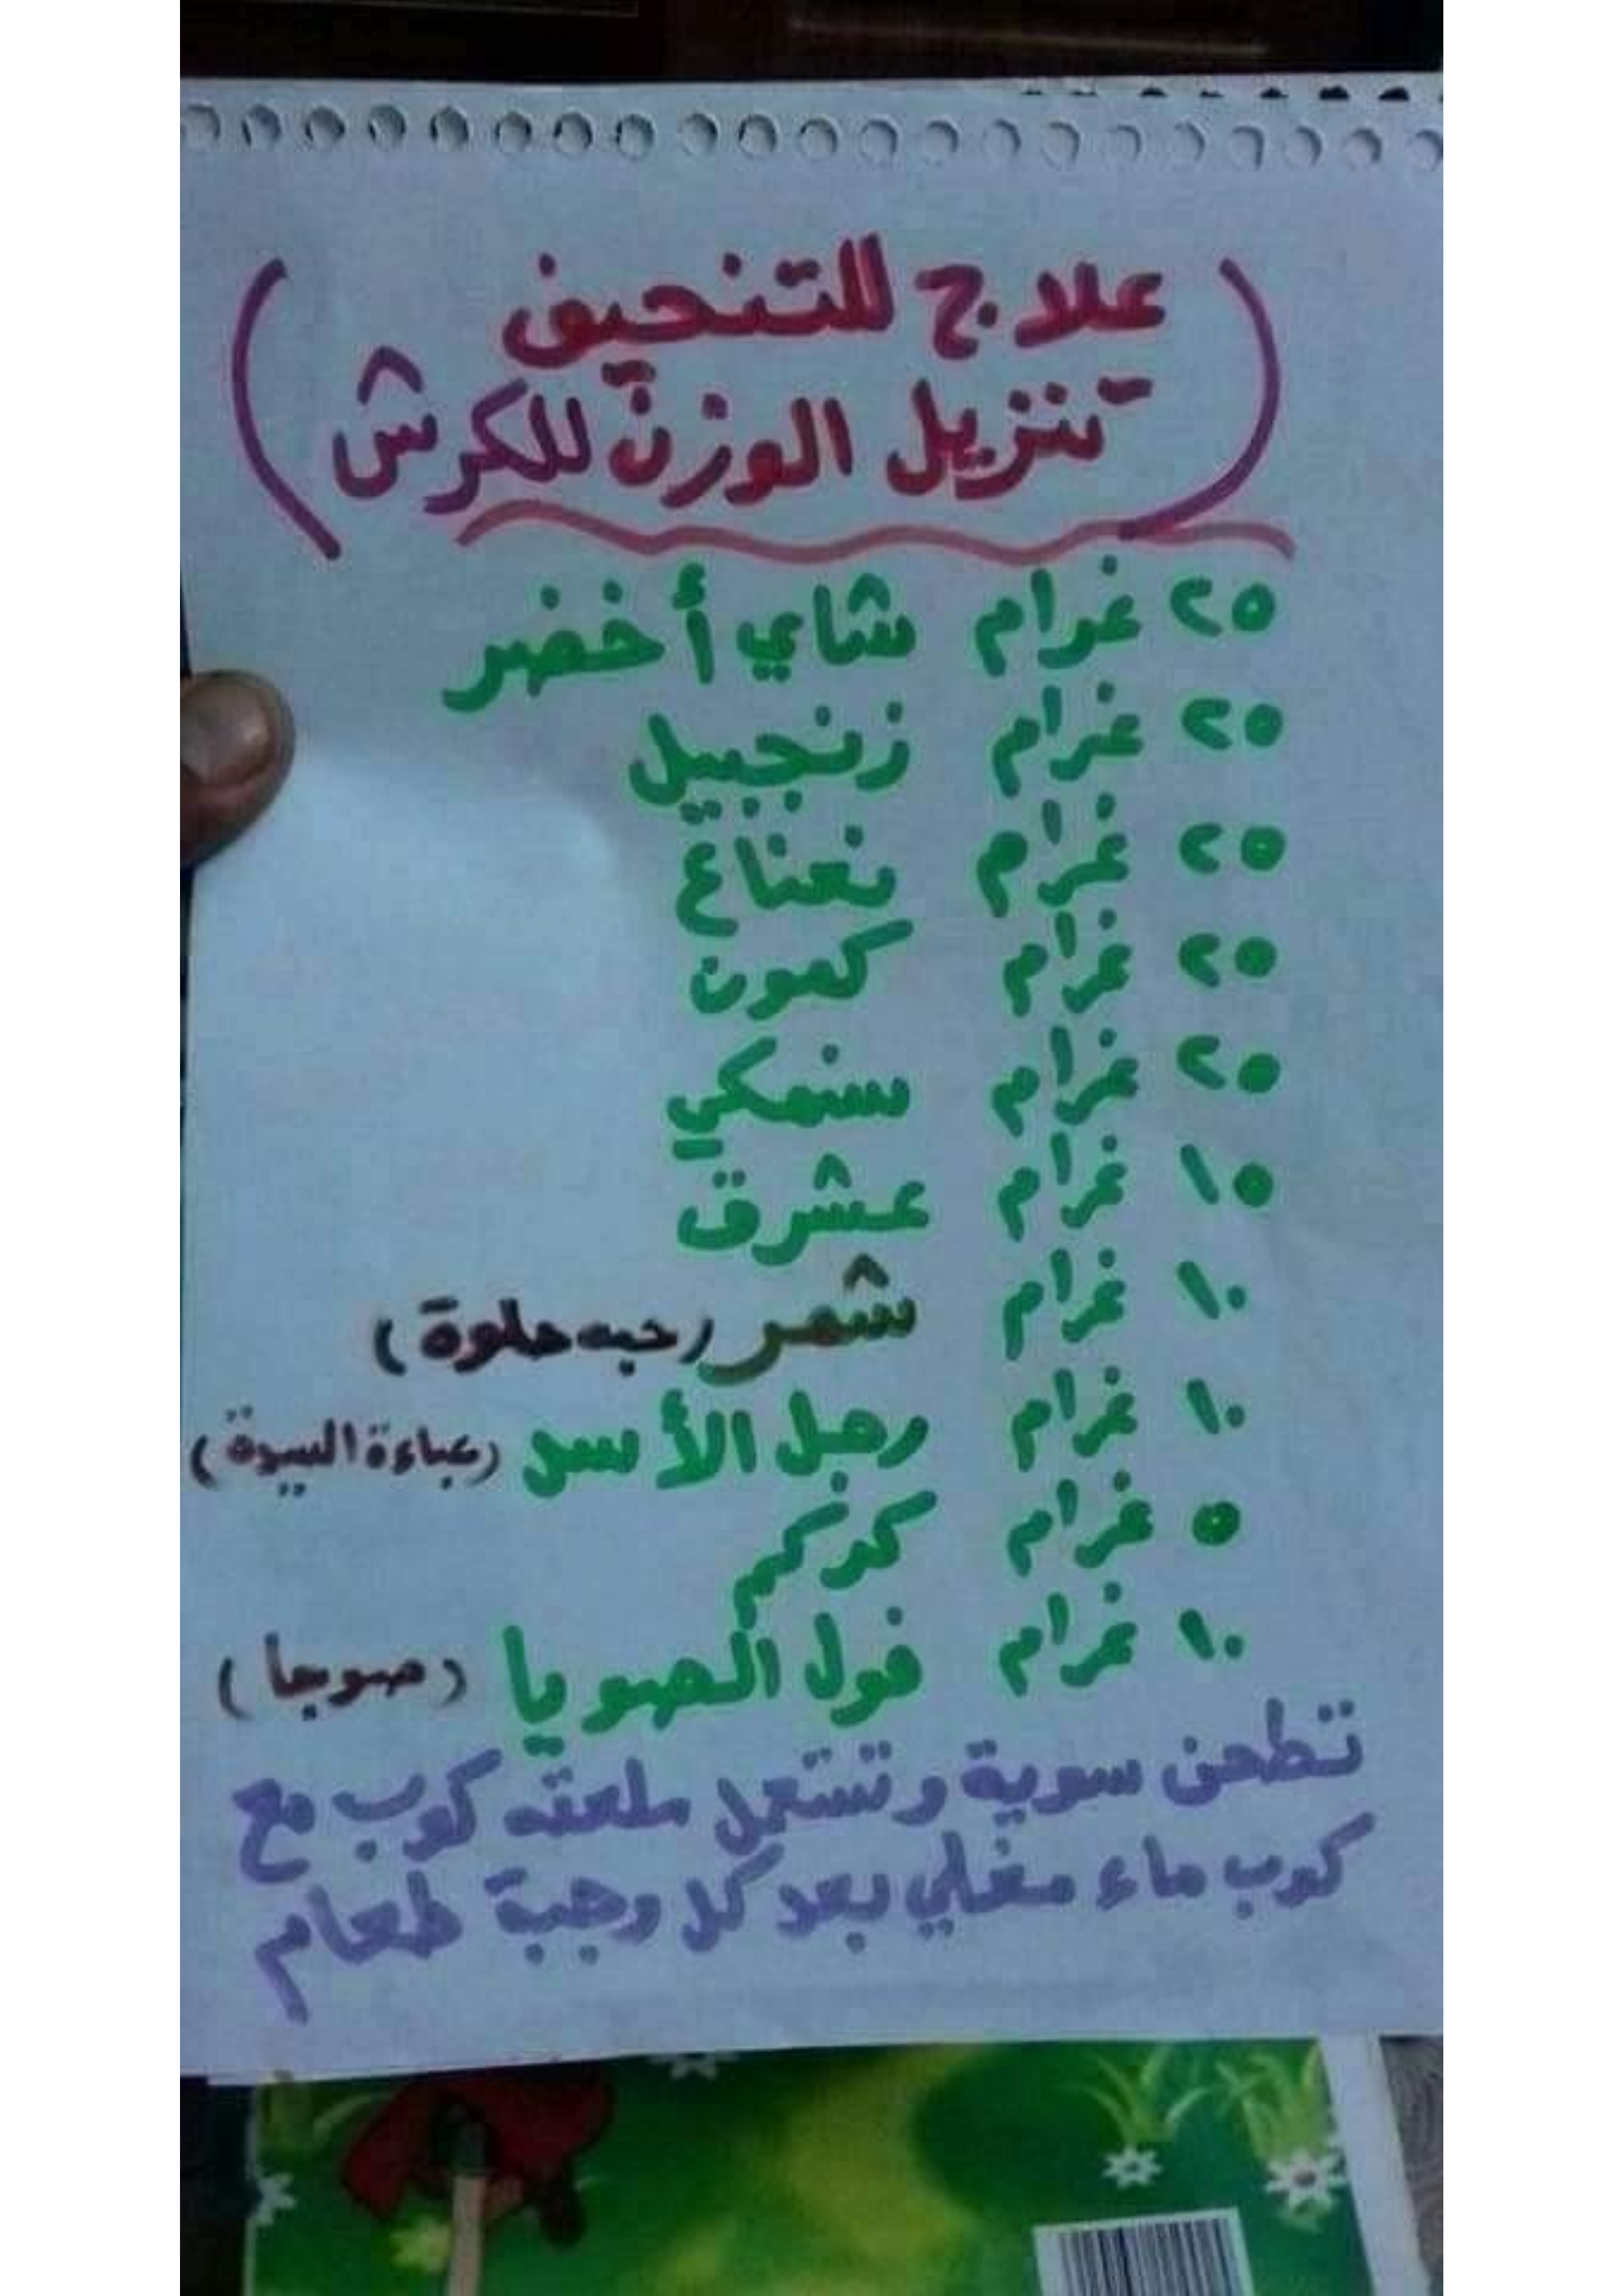 (علاج للتنحيف
تنزيل الوزن للكرش)
٢٥ غرام شاي أخضر
٢٥ غرام زنجبيل
٢٥ غرام نعناع
٢٥ غرام كمون
٢٥ غرام سنمكي
١٥ غرام عشرق
١٠ غرام شمر (حبه حلوة)
١٠ غرام رجل الأسد (عباءة السيدة)
٥ غرام كركم
١٠ غرام فول الصويا (صوجا)
تطحن سوية وتستعمل ملعقه كوب مع
كوب ماء مغلي بعد كل وجبة طعام